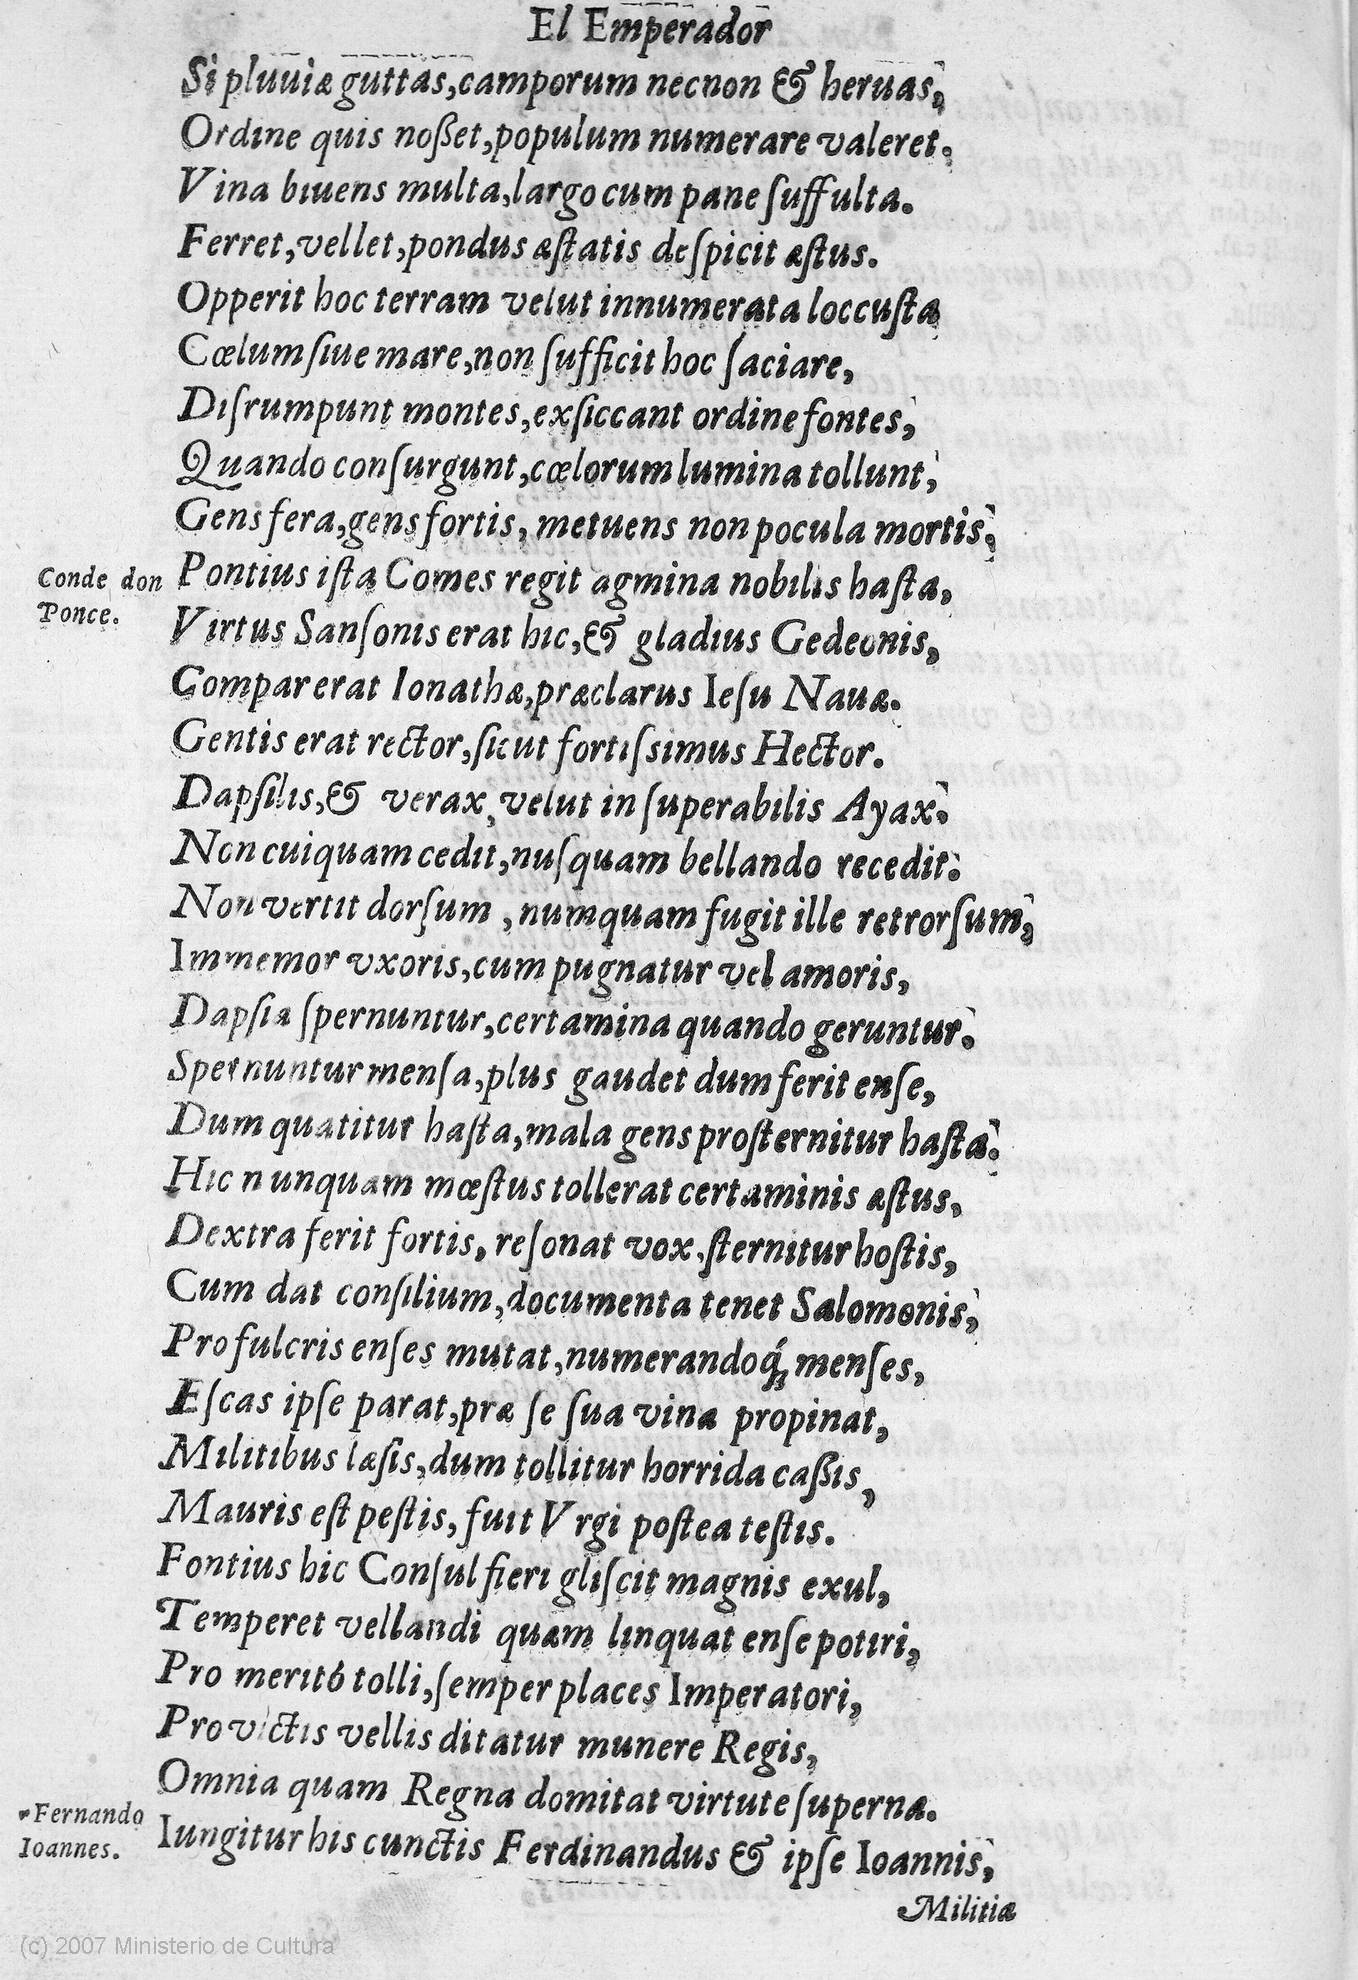 El Emperador
Si pluuiæ guttas, camporum necnon & heruas,
Ordine quis noßet, populum numerare valeret.
Vina biuens multa, largo cum pane suffulta.
Ferret, vellet, pondus æstatis despicit æstus.
Opperit hoc terram velut innumerata loccusta
Cœlum siue mare, non sufficit hoc saciare,
Disrumpunt montes, exsiccant ordine fontes,
Quando consurgunt, cœlorum lumina tollunt,
Gens fera, gens fortis, metuens non pocula mortis.
Conde don Ponce.
Pontius ista Comes regit agmina nobilis hasta,
Virtus Sansonis erat hic, & gladius Gedeonis,
Compar erat Ionathæ, præclarus Iesu Nauæ.
Gentis erat rector, sicut fortissimus Hector.
Dapsilis, & verax, velut insuperabilis Ayax.
Non cuiquam cedit, nusquam bellando recedit.
Non vertit dorsum, numquam fugit ille retrorsum,
Immemor vxoris, cum pugnatur vel amoris,
Dapsia spernuntur, certamina quando geruntur.
Spernuntur mensa, plus gaudet dum ferit ense,
Dum quatitur hasta, mala gens prosternitur hasta.
Hic nunquam mœstus tollerat certaminis æstus,
Dextra ferit fortis, resonat vox, sternitur hostis,
Cum dat consilium, documenta tenet Salomonis,
Pro fulcris enses mutat, numerandoq́; menses,
Escas ipse parat, præ se sua vina propinat,
Militibus læsis, dum tollitur horrida caßis,
Mauris est pestis, fuit Vrgi postea testis.
Fontius hic Consul fieri gliscit magnis exul,
Temperet vellandi quam linquat ense potiri,
Pro meritò tolli, semper places Imperatori,
Pro victis vellis ditatur munere Regis,
Omnia quam Regna domitat virtute superna.
Fernando Ioannes.
Iungitur his cunctis Ferdinandus & ipse Ioannis,
Militiæ
(c) 2007 Ministerio de Cultura